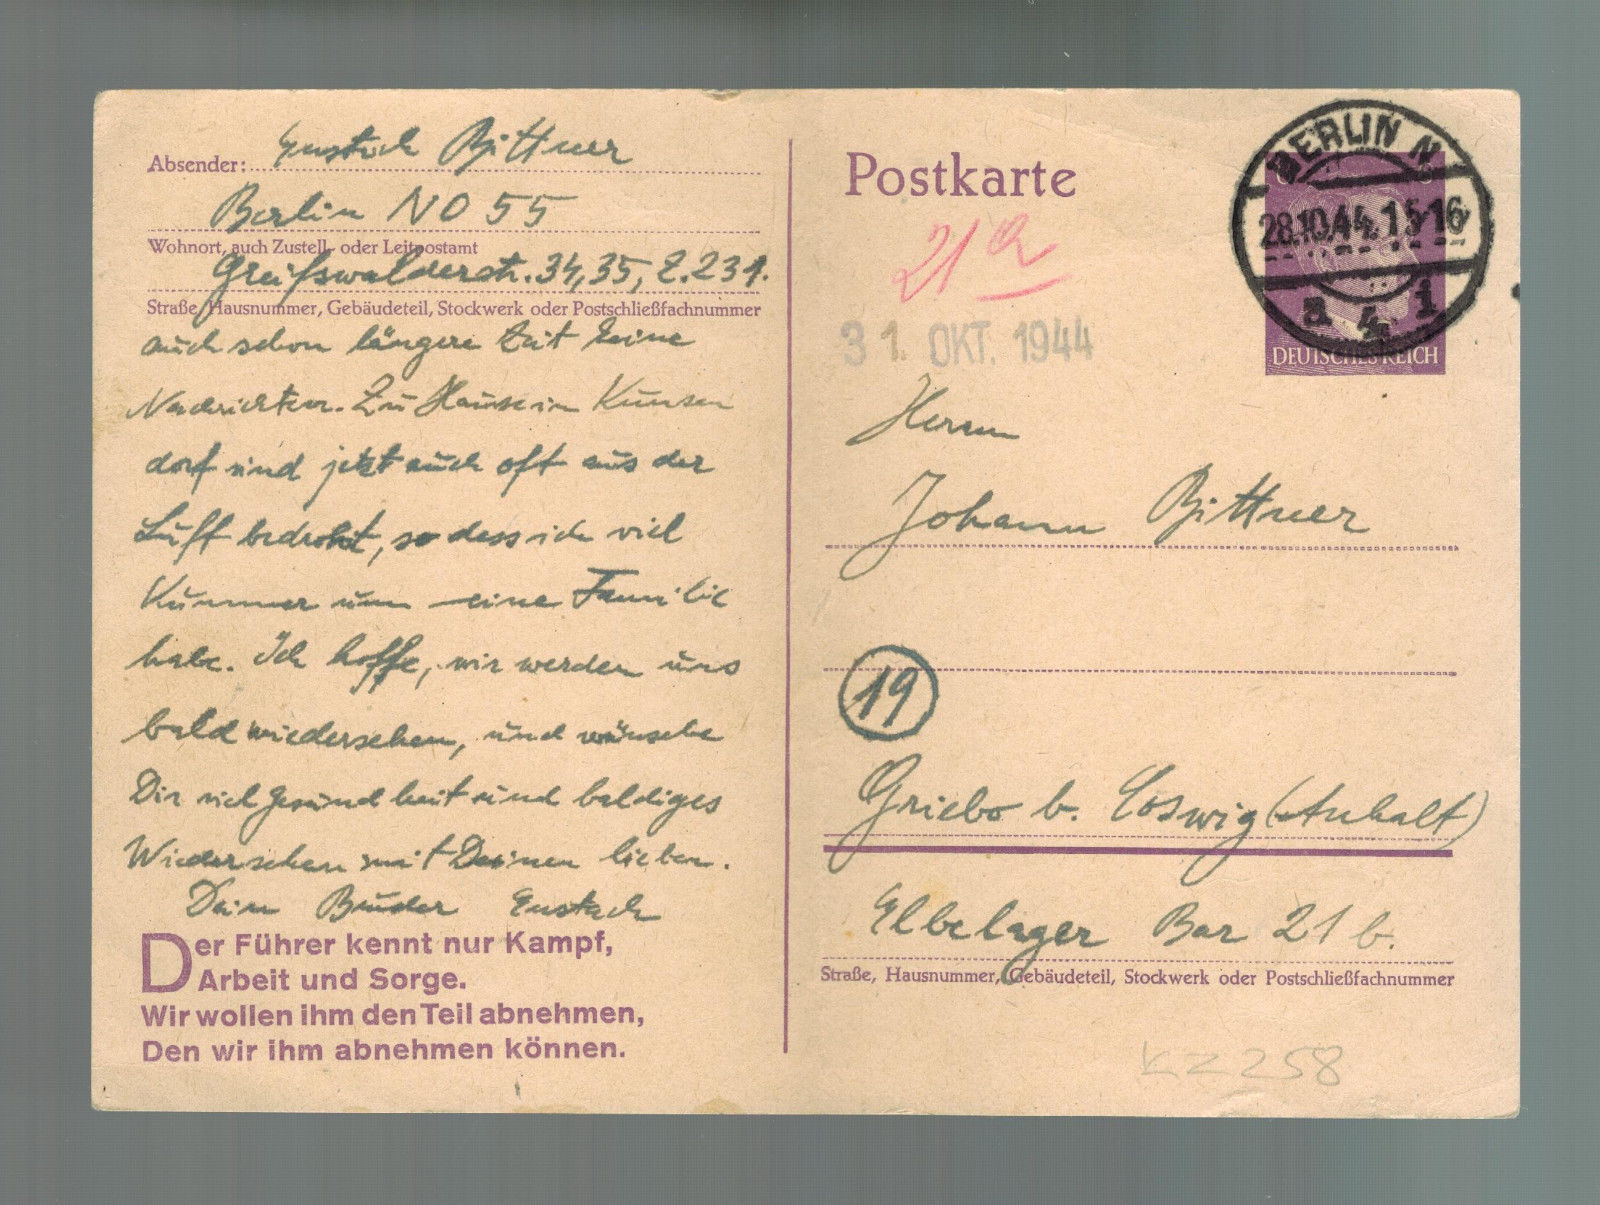 Absender: Eustach Bittner
Berlin NO 55
Wohnort, auch Zustell- oder Leitpostamt
Greifswalderstr. 34,35, Z.231.
Straße, Hausnummer, Gebäudeteil, Stockwerk oder Postschließfachnummer
auch schon längere Zeit keine
Nachrichten. Zu Hause in Kunsen
dorf sind jetzt auch oft aus der
Luft bedroht, so dass ich viel
Kummer um eine Familie
habe. Ich hoffe, wir werden uns
bald wiedersehen, und wünsche
Dir viel Gesundheit und baldiges
Wiedersehen mit Deinen lieben.
Dein Bruder Eustach
Der Führer kennt nur Kampf,
Arbeit und Sorge.
Wir wollen ihm den Teil abnehmen,
Den wir ihm abnehmen können.
Postkarte
BERLIN N
28.10.44.15-16
a 4 i
DEUTSCHES REICH
21a
31. OKT. 1944
Herrn
Johann Bittner
19
Griebo b. Coswig (Anhalt)
Elbelager Bar 21 b.
Straße, Hausnummer, Gebäudeteil, Stockwerk oder Postschließfachnummer
KZ 258